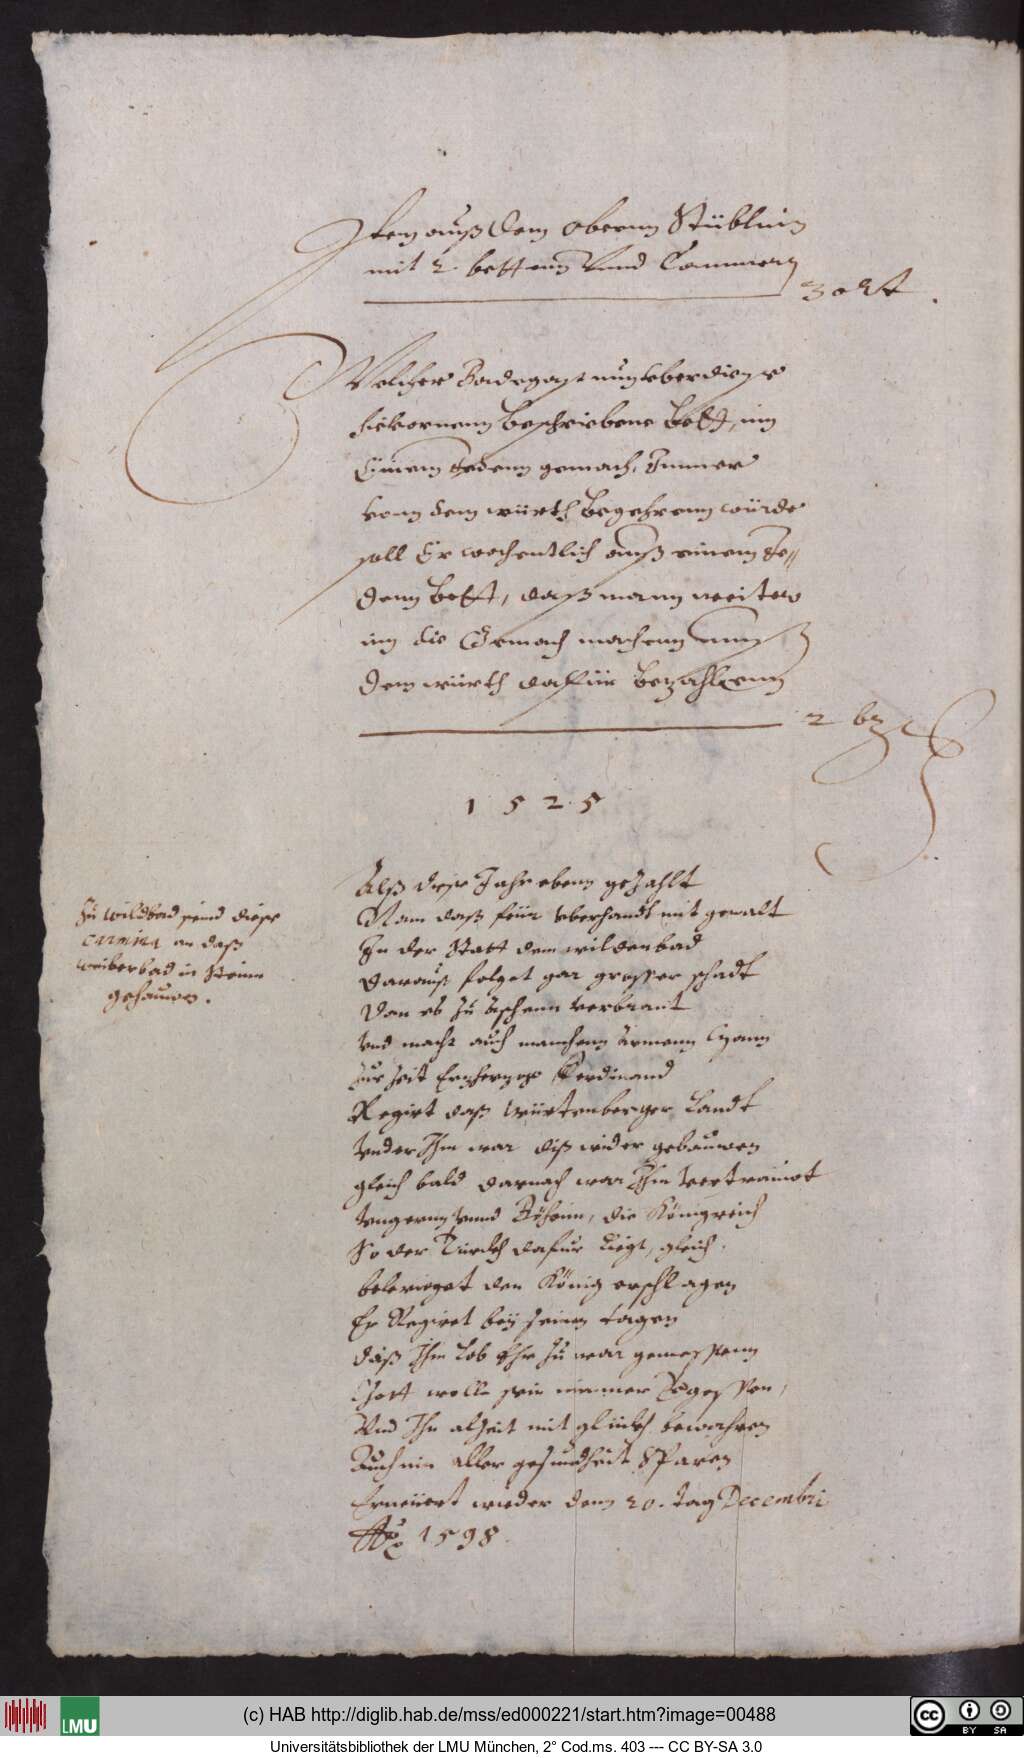 Item auß dem obernn Stüblinn
mit 2 bettenn Vnnd Cammern
3 ort.
Welcher Badegast nun vber diese
hievornenn beschriebene bett, inn
Einem Jedenn gemach, Immer
vonn dem würth begehrenn würde
soll Er wochentlich auß einem Je„
denn bett, daß mann weiter
inn die Gemach machenn muß
dem würth dafür bezahlenn
2 bz
1525
Alß diese Jahr eben gezahlt
Nam daß feür vberhandt mit gewalt
In der Statt dem wildenbad
darauß folget gar grosser schadt
Dan es zu Aschenn verbrant
vnd macht auch manchenn Armenn
zur Zeit Ertzhertzog Ferdinand
Regirt daß Würtenberger Landt
vnder Ihm war diß wider gebauwen
gleich bald darnach war Ihm vertrauwt
vngernn vnnd Böheim, die Königreich
So der Türckh dafur ligt, gleich.
bekrieget den König erschlagen
Er Regiret bey seinen tagen
daß Ihm Lob Ehr zu war gemessenn
Gott wolle sein nimmer vergessen,
Vnd Ihn alzeit mit glückh bewahren
Auch in aller gesundheit Sparen
Erneuert wieder denn 20. tag Decembris
Ao 1598.
Zu wildbad seind diese
carmina an daß
weiberbad in Steinn
gehauwen.
(c) HAB http://diglib.hab.de/mss/ed000221/start.htm?image=00488
LMU
cc BY SA
Universitätsbibliothek der LMU München, 2° Cod.ms. 403 --- CC BY-SA 3.0